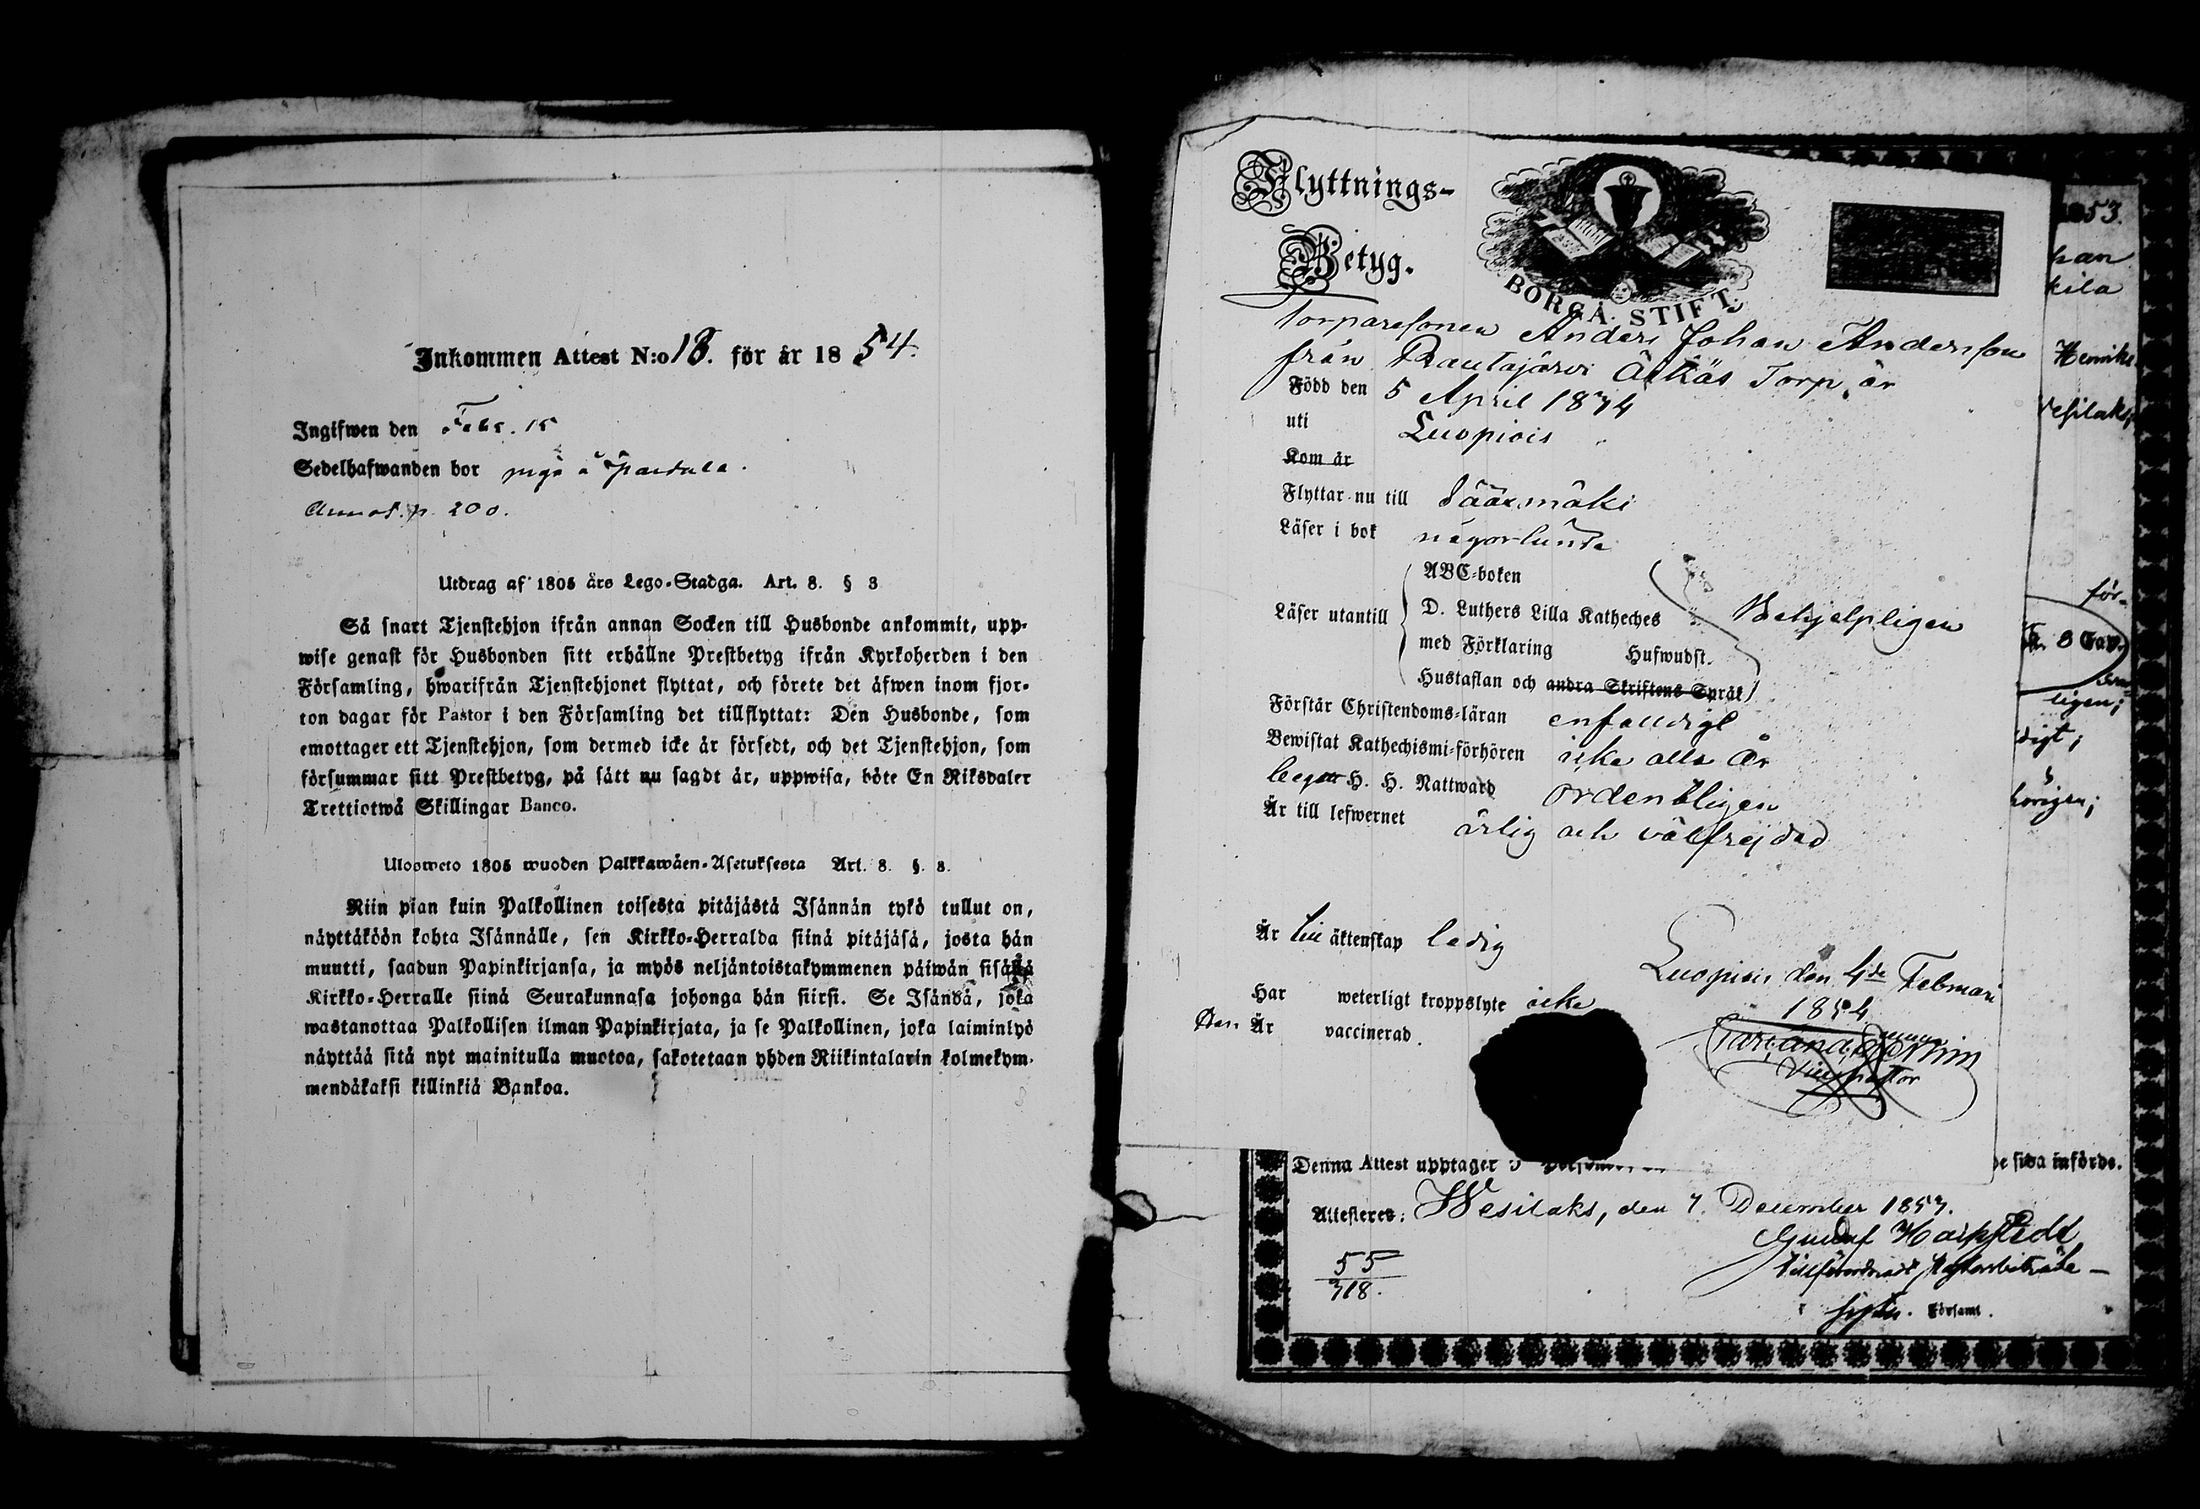 Inkommen Attest N:o 18. för år 1854.
Ingifwen den Febr. 15
Sedelhafwanden bor
Annot. p. 200.
Utdrag af 1805 års Lego-Stadga. Art. 8. § 8
Så snart Tjenstehjon ifrån annan Socken till Husbonde ankommit, upp-
wise genast för Husbonden sitt erhållne Prestbetyg ifrån Kyrkoherden i den
Församling, hwarifrån Tjenstehjonet flyttat, och förete det äfwen inom fjor-
ton dagar för Pastor i den Församling det tillflyttat: Den Husbonde, som
emottager ett Tjenstehjon, som dermed icke är försedt, och det Tjenstehjon, som
försummar sitt Prestbetyg, på sätt nu sagdt är, uppwisa, böte En Riksdaler
Trettiotwå Skillingar Banco.
Ulosweto 1805 wuoden Palkkawäen-Asetuksesta Art. 8. §. 8.
Niin pian kuin Palkollinen toisesta pitäjästä Isännän tykö tullut on,
näyttäköön kohta Isännälle, sen Kirkko-Herralda siinä pitäjäsä, josta hän
muutti, saadun Papinkirjansa, ja myös neljäntoistakymmenen päiwän sisällä
Kirkko-Herralle siinä Seurakunnasa johonga hän siirsi. Se Isändä, joka
wastanottaa Palkollisen ilman Papinkirjata, ja se Palkollinen, joka laiminlyö
näyttää sitä nyt mainitulla muotoa, sakotetaan yhden Riikintalarin kolmekym-
mendäkaksi killinkiä Bankoa.
Flyttnings-
Betyg.
BORGÅ STIFT.
Torparesonen Anders Johan Andersson
från Rautajärvi Äikäs Torp, är
Född den 5 April 1834
uti Luopiois
Kom år
Flyttar nu till Sääxmäki
Läser i bok någorlunda
Läser utantill
ABC-boken
D. Luthers Lilla Katheches
med Förklaring Hufwudst.
Hustaflan och andra Skriftens Språk
Behjelpligen
Förstår Christendoms-läran enfaldigt
Bewistat Kathechismi-förhören icke alla År
begått H. H. Nattward ordentligen
Är till lefwernet ärlig och välfrejdad
Är till äktenskap ledig
Luopiois den 4de Februari
1854
Har weterligt kroppslyte icke
Är vaccinerad.
Vice pastor
1853.
han
kila
Henriks
Vesilaks,
för-
ligen;
digt;
Denna Attest upptager 3
de sida införde.
Attesteres: Wesilaks, den 7. December 1853.
55
318.
i Församl.